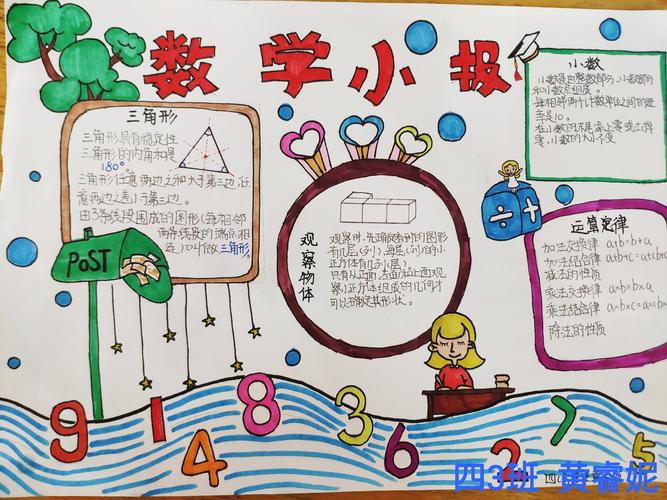 数学小报
三角形
三角形具有稳定性
三角形的内角和是
180°。
三角形任意两边之和大于第三边,任
意两边之差小于第三边。
由3条线段围成的图形(每相邻
两条线段的端点相
连)叫做三角形。
PoST
观察物体
观察时,先确定看到的图形
有几层(列),每层(列)有几个小
正方体有几列(层)
只有从正面,左面和上面观
察小正方体组成的几何才
可以确定其形状。
小数
小数是由整数部分、小数部分
和小数点组成。
每相邻两个计数单位之间的进
率是10。
在小数的末尾添上零或去掉
零,小数的大小不变
÷+
运算定律
加法交换律 a+b=b+a
加法结合律 a+b+c=a+(b+c
减法的性质
乘法交换律 a×b=b×a
乘法结合律 a×b×c=a×(b×c
除法的性质
9 1 4 8 3 6 2 7 5
四3班 黄睿妮